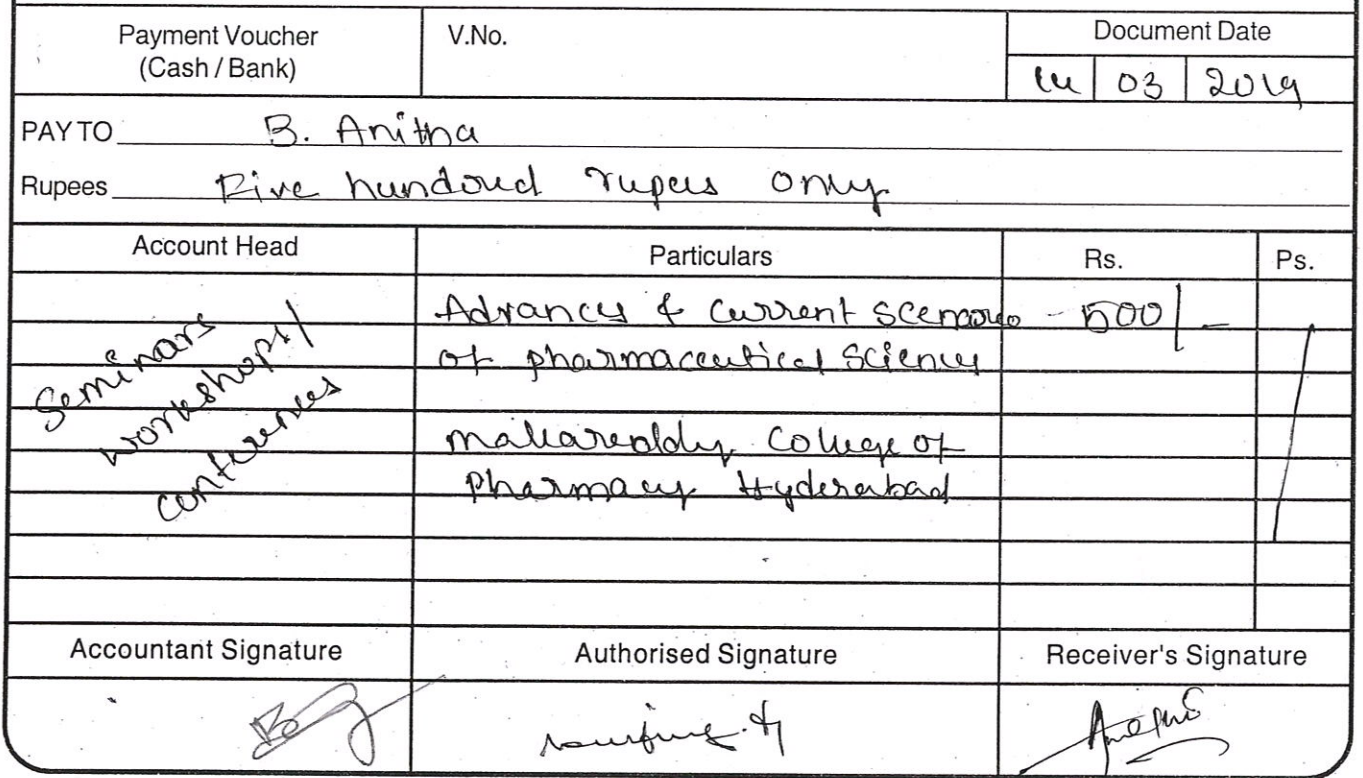 Payment Voucher
(Cash / Bank)
V.No.
Document Date
14 03 2019
PAY TO B. Anitha
Rupees Five hundred rupees only
Account Head
Particulars
Rs.
Ps.
Seminars
workshops/
conferences
Advances & Current Scenario - 500/-
of pharmaceutical Sciences
mallareddy College of
Pharmacy Hyderabad
Accountant Signature
Authorised Signature
Receiver's Signature